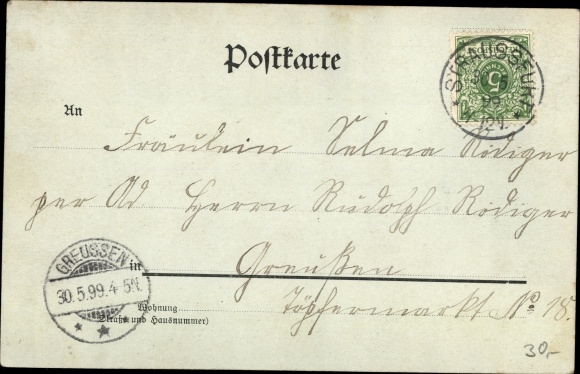 Postkarte
STRAUSSFURT
99
5
An
Fräulein Selma Rödiger
per Ad Herrn Rudolph Rödiger
GREUSSEN
30.5.99. 4-5N.
in Greußen
Wohnung Töpfermarkt No 18.
(Straße und Hausnummer)
30,-